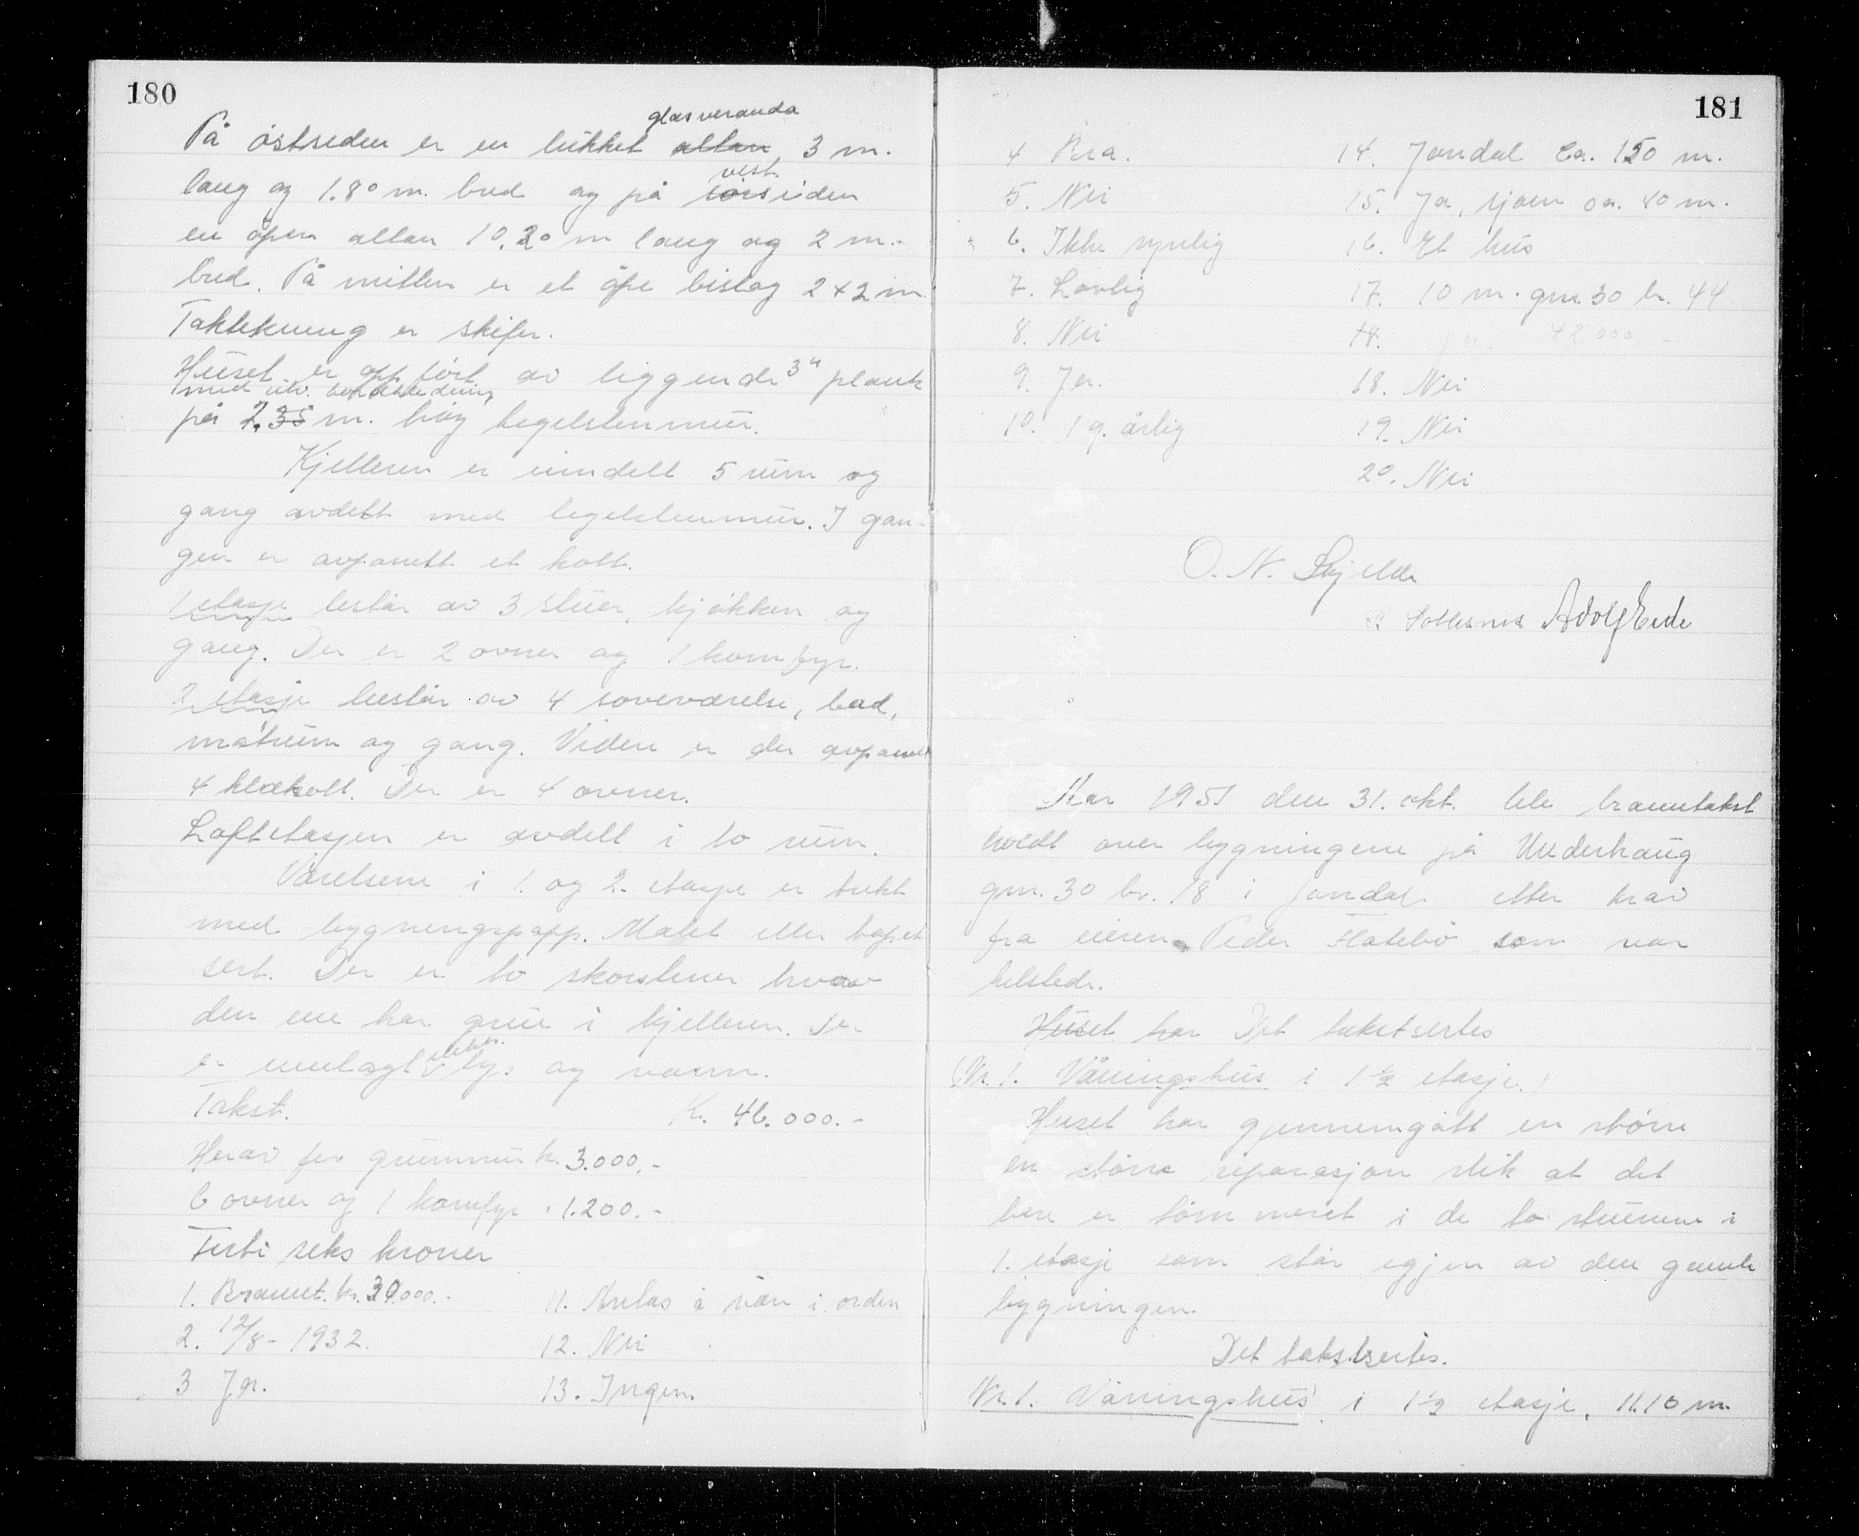 180
glasveranda
På østsiden er en lukket altan 3 m.
vest
lang og 1.80 m. bred og på sørsiden
en åpen altan 10,20 m lang og 2 m.
bred. På mitten er et åpe bislag 2 x 2 m
Taktekning er skifer.
Huset er oppført av liggende 3" plank
med utv. bordkledning
på 2.35 m. høy tegelstenmur.
Kjelleren er inndelt 5 rum og
gang avdelt med tegelstenmur. I gan-
gen er avpanelt et kott.
1 etasje består av 3 stuer, kjøkken og
gang. Der er 2 ovner og 1 komfyr.
2 etasje består av 4 soveværelse, bad,
matrum og gang. Videre er der avpanelt
4 klækott. Der er 4 ovner.
Loftetasjen er avdelt i to rum.
Værelsene i 1. og 2. etasje er trekt
med bygningspapp. Malet eller tapet
sert. Der er to skorstener hvorav
den ene har grue i kjelleren. Der
elektr.
er innlagt lys og varm.
Takst. K. 46.000.-
Herav for grunnmur kr. 3.000.-
6 ovner og 1 komfyr " 1.200.-
Førti seks kroner
1. Brannt. kr. 30.000.-
2. 12/8 - 1932.
3 Ja.
11. Antas å være i orden
12. Nei
13. Ingen
181
4 Bra.
5. Nei
6. Ikke synlig
7. Lovlig
8. Nei
9. Ja.
10. 1 g. årlig
14. Jondal ca. 150 m.
15. Ja, sjøen ca. 40 m.
16. Et hus
17. 10 m. gnr. 30 br. 44
18. kr. 42000 -
18. Nei
19. Nei
20. Nei
O. N. Skjelde
Adolf Eide
Aar 1951 den 31. okt. ble branntakst
holdt over bygningene på Underhaug
gnr. 30 br. 18 i Jondal etter krav
fra eieren Peder Flatebø som var
tilstede.
Huset har Det takstsertes
(Nr. 1. Våningshus i 1 ½ etasje.)
Huset har gjennemgått en større
en større reparasjon slik at det
bare er tømmeret i de to stuerne i
1. etasje som står igjen av den gamle
bygningen.
Det takstsertes.
Nr. 1. Våningshus i 1 ½ etasje, 11.10 m.